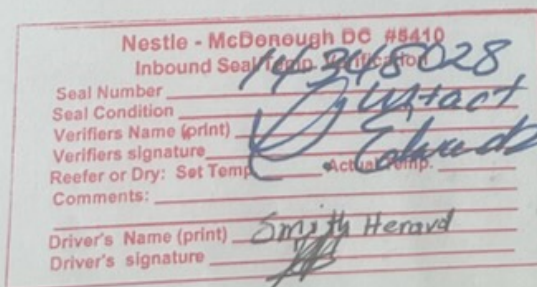 Nestle - McDonough DC #5410
Inbound Seal/Temp. Verification
Seal Number 14348028
Seal Condition Intact
Verifiers Name (print)
Verifiers signature Edwards
Reefer or Dry: Set Temp. Actual Temp.
Comments:
Driver's Name (print) Smith Herard
Driver's signature